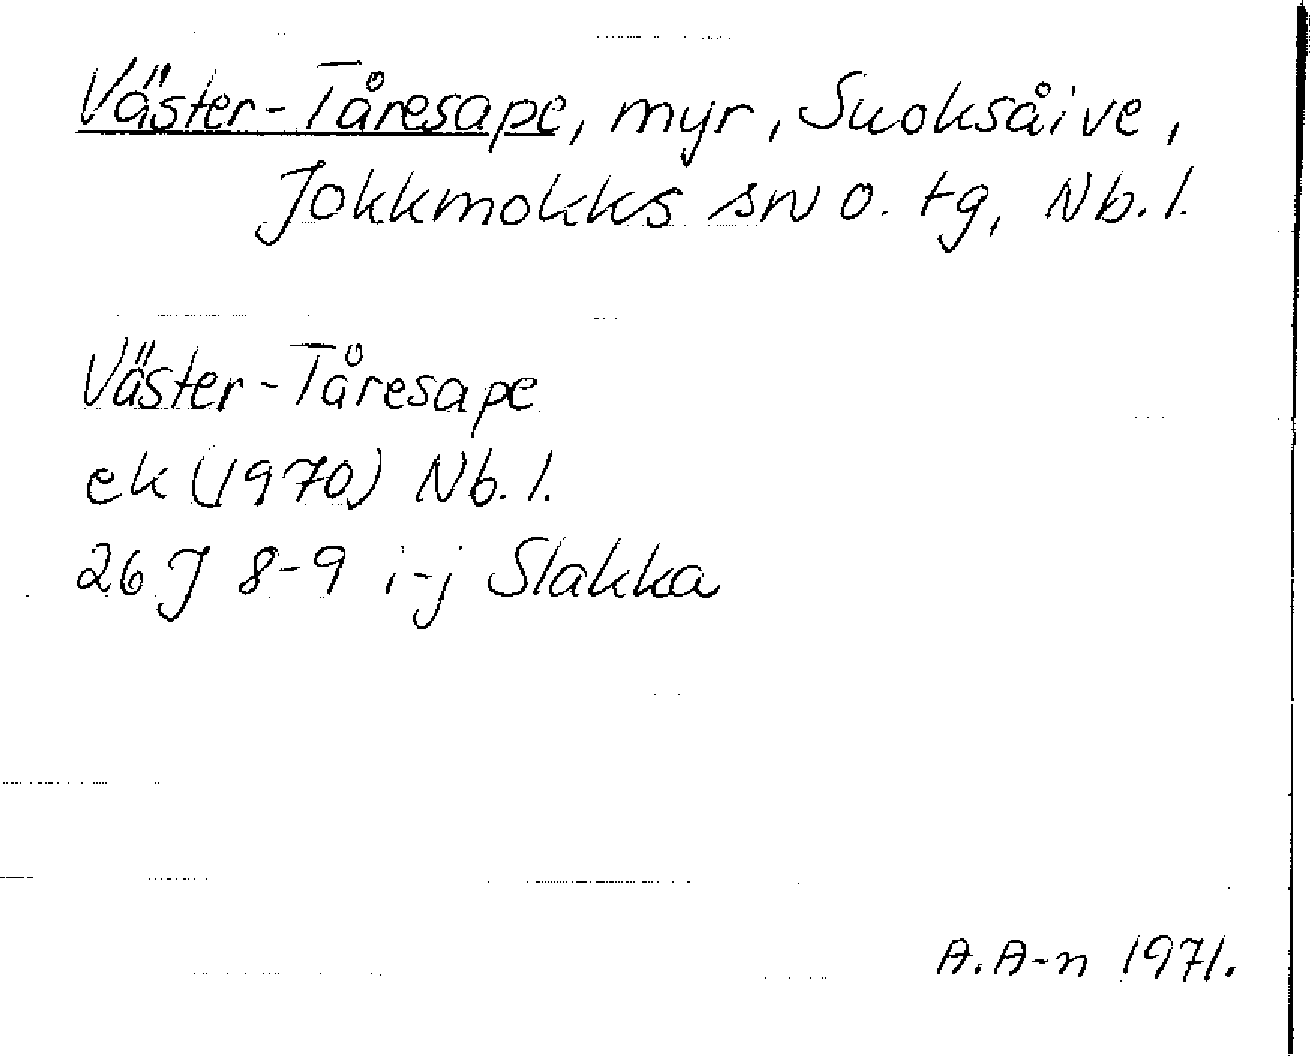 Väster-Tåresape, myr, Suoksåive,
Jokkmokks sn o. tg, Nb. l.
Väster-Tåresape
ek (1970) Nb. l.
26 J 8-9 i-j Slakka
A. A-n 1971.